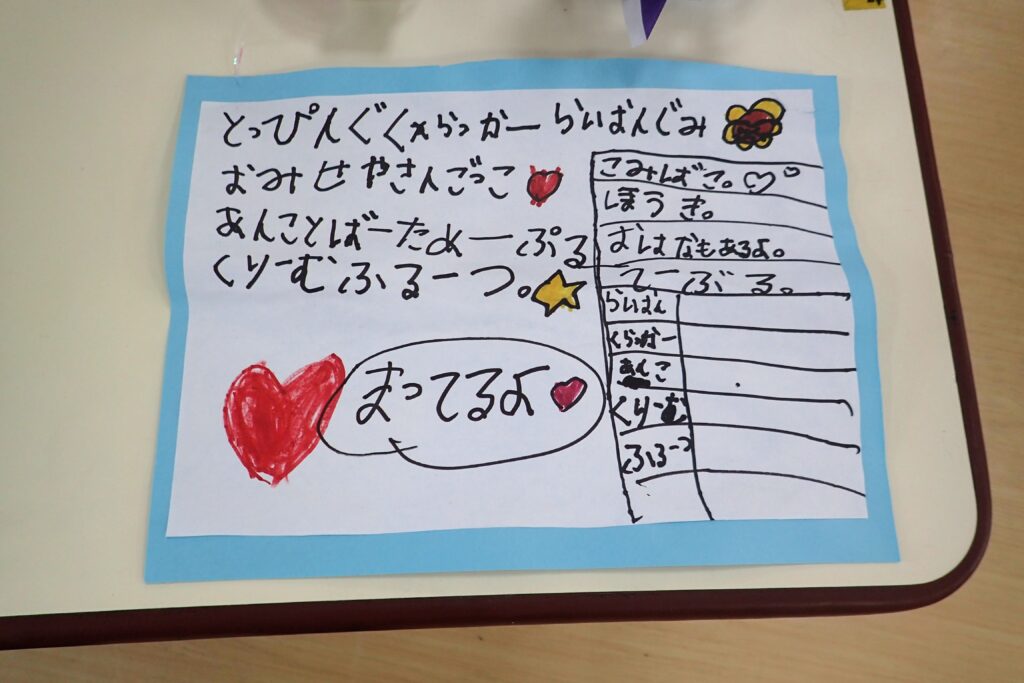 とっぴんぐくらっかー らいばんぐみ
おみせやさんごっこ
あんことばーためーぷる
くりーむふるーつ。
まってるよ
こみんばこ。
ほうき。
おはなもあるよ。
てーぶる。
らいばん
くらっかー
あんこ
くりーむ
ふるーつ